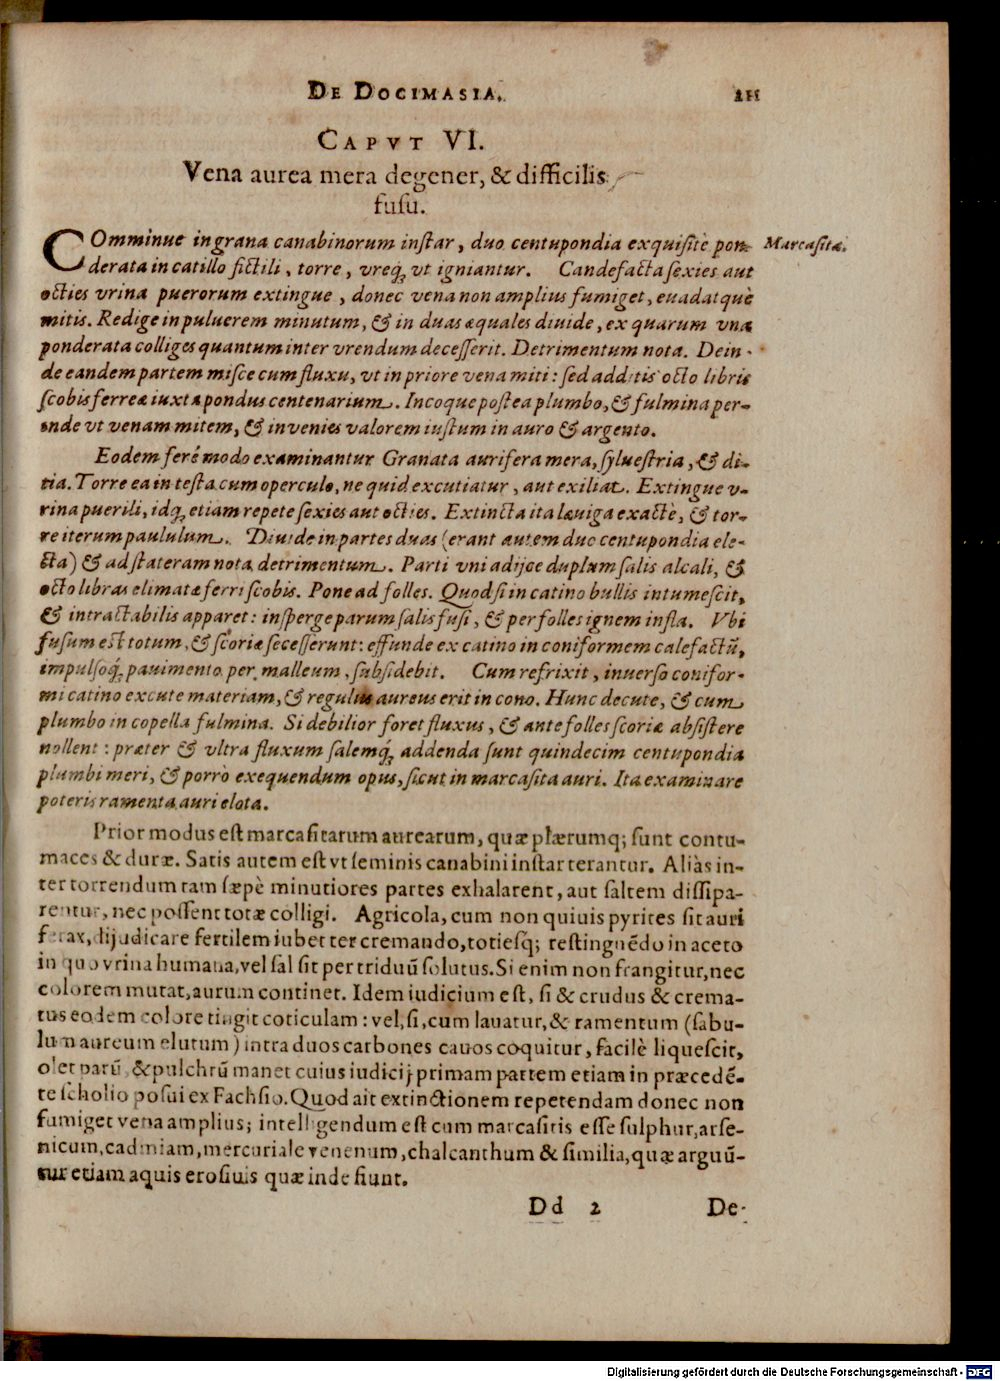 DE DOCIMASIA.
CAPVT VI.
Vena aurea mera degener, & difficilis
fusu.
COmminue in grana canabinorum instar, duo centupondia exquisitè pon- Marcasitæ.
derata in catillo fictili, torre, vreq́ꝫ vt igniantur. Candefacta sexies aut
octies vrina puerorum extingue, donec vena non amplius fumiget, euadatquè
mitis. Redige in puluerem minutum, & in duas æquales diuide, ex quarum vna
ponderata colliges quantum inter vrendum decesserit. Detrimentum nota. Dein-
de eandem partem misce cum fluxu, vt in priore vena miti: sed additis octo libris
scobis ferreæ iuxta pondus centenarium. Incoque postea plumbo, & fulmina per-
inde vt venam mitem, & invenies valorem iustum in auro & argento.
Eodem feré modo examinantur Granata aurifera mera, syluestria, & di-
tia. Torre ea in testa cum operculo, ne quid excutiatur, aut exiliat. Extingue v-
rina puerili, idq́ꝫ etiam repete sexies aut octies. Extincta ita læuiga exactè, & tor-
re iterum paululum. Diuide in partes duas (erant autem duo centupondia ele-
cta) & ad stateram nota detrimentum. Parti vni adijce duplum salis alcali, &
octo libras elimatæ ferri scobis. Pone ad folles. Quod si in catino bullis intumescit,
& intractabilis apparet: insperge parum salis fusi, & per folles ignem infla. Vbi
fusum est totum, & scoriæ secesserunt: effunde ex catino in coniformem calefactū,
impulsoq́ꝫ pauimento per malleum, subsidebit. Cum refrixit, inuerso conifor-
mi catino excute materiam, & regulus aureus erit in cono. Hunc decute, & cum
plumbo in copella fulmina. Si debilior foret fluxus, & ante folles scoriæ absistere
nollent: præter & vltra fluxum salemq́ꝫ addenda sunt quindecim centupondia
plumbi meri, & porrò exequendum opus, sicut in marcasita auri. Ita examinare
poteris ramenta auri elota.
Prior modus est marcasitarum aurearum, quæ plærumq; sunt contu-
maces & duræ. Satis autem est vt seminis canabini instar terantur. Aliàs in-
ter torrendum tam sæpè minutiores partes exhalarent, aut saltem dissipa-
rentur, nec possent totæ colligi. Agricola, cum non quiuis pyrites sit auri
ferax, dijudicare fertilem iubet ter cremando, totiesq; restinguēdo in aceto
in quo vrina humana, vel sal sit per triduū solutus. Si enim non frangitur, nec
colorem mutat, aurum continet. Idem iudicium est, si & crudus & crema-
tus eodem colore tingit coticulam: vel, si, cum lauatur, & ramentum (sabu-
lum aureum elutum) intra duos carbones cauos coquitur, facilè liquescit,
olet parū, & pulchrū manet cuius iudicij primam partem etiam in præcedē-
te scholio posui ex Fachsio. Quod ait extinctionem repetendam donec non
fumiget vena amplius; intelligendum est cum marcasitis esse sulphur, arse-
nicum, cadmiam, mercuriale venenum, chalcanthum & similia, quæ arguū-
tur etiam aquis erosiuis quæ inde fiunt.
Dd 2 De-
Digitalisierung gefördert durch die Deutsche Forschungsgemeinschaft - DFG